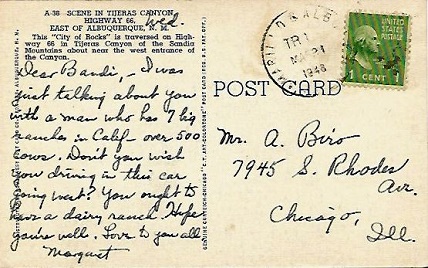 A-38 SCENE IN TIJERAS CANYON,
HIGHWAY 66,
EAST OF ALBUQUERQUE, N. M.
Wed.
This "City of Rocks" is traversed on High-
way 66 in Tijeras Canyon of the Sandia
Mountains about near the west entrance of
the Canyon.
Dear Bandi, – I was
just talking about you
with a man who has 7 big
ranches in Calif – over 500
cows. Don't you wish
you driving in this car
going west? You ought to
have a dairy ranch. Hope
you're well. Love to you all
Margaret
POST CARD
1948
1 CENT 1
Mr. A. Biro
7945 S. Rhodes
Av.
Chicago,
Ill.